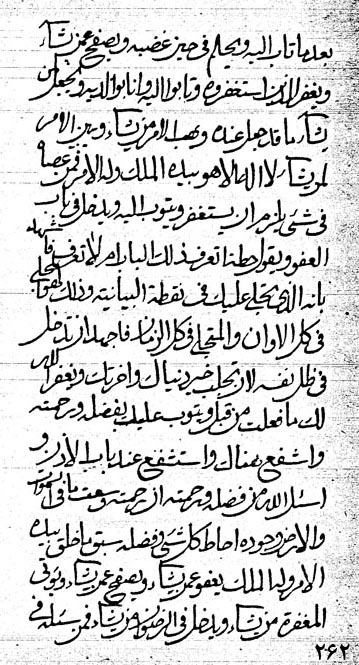 بعد ما تاب اليه ويحلم في حين غضبه ويصفح عمن يشآء
ويغفر الذين استغفروه وتابوا اليه وانابوا لديه ويجعل من
يشآء ما قد جعل عنده ويهب الامر من يشآء وبين الامر
لمن يشآء لا اله الا هو بيده الملك وله الامر فمن عصاه
في شئ يلزم ان يستغفر ويتوب اليه ويدخل في باب
العفو ويقول حطة تعرف ذلك الباب ام لا تعرف فاشهد
بانه الذي تجلى عليك في نقطة البيانية وذلك لهو المتجلي
في كل الاوان والمتجلي في كل الزمان فاجهد ان تدخل
في ظل نفسه لان تجد خير دنياك واخريك ويغفر الله
لك ما فعلت من قبل ويتوب عليك بفضله ورحمته
واشفع هناك واستشفع عند باب الامر و
اسئل الله من فضله ورحمته ان رحمته وسعت ما في السموات
والارض وجوده احاط كل شئ وفضله سبق ما خلق بيده
الامر وله الملك يعفو عمن يشآء ويصفح عمن يشآء ويؤتي
المغفرة من يشآء ويدخل في الرضوان من يشآء فمن يسئله في
٢٦٢